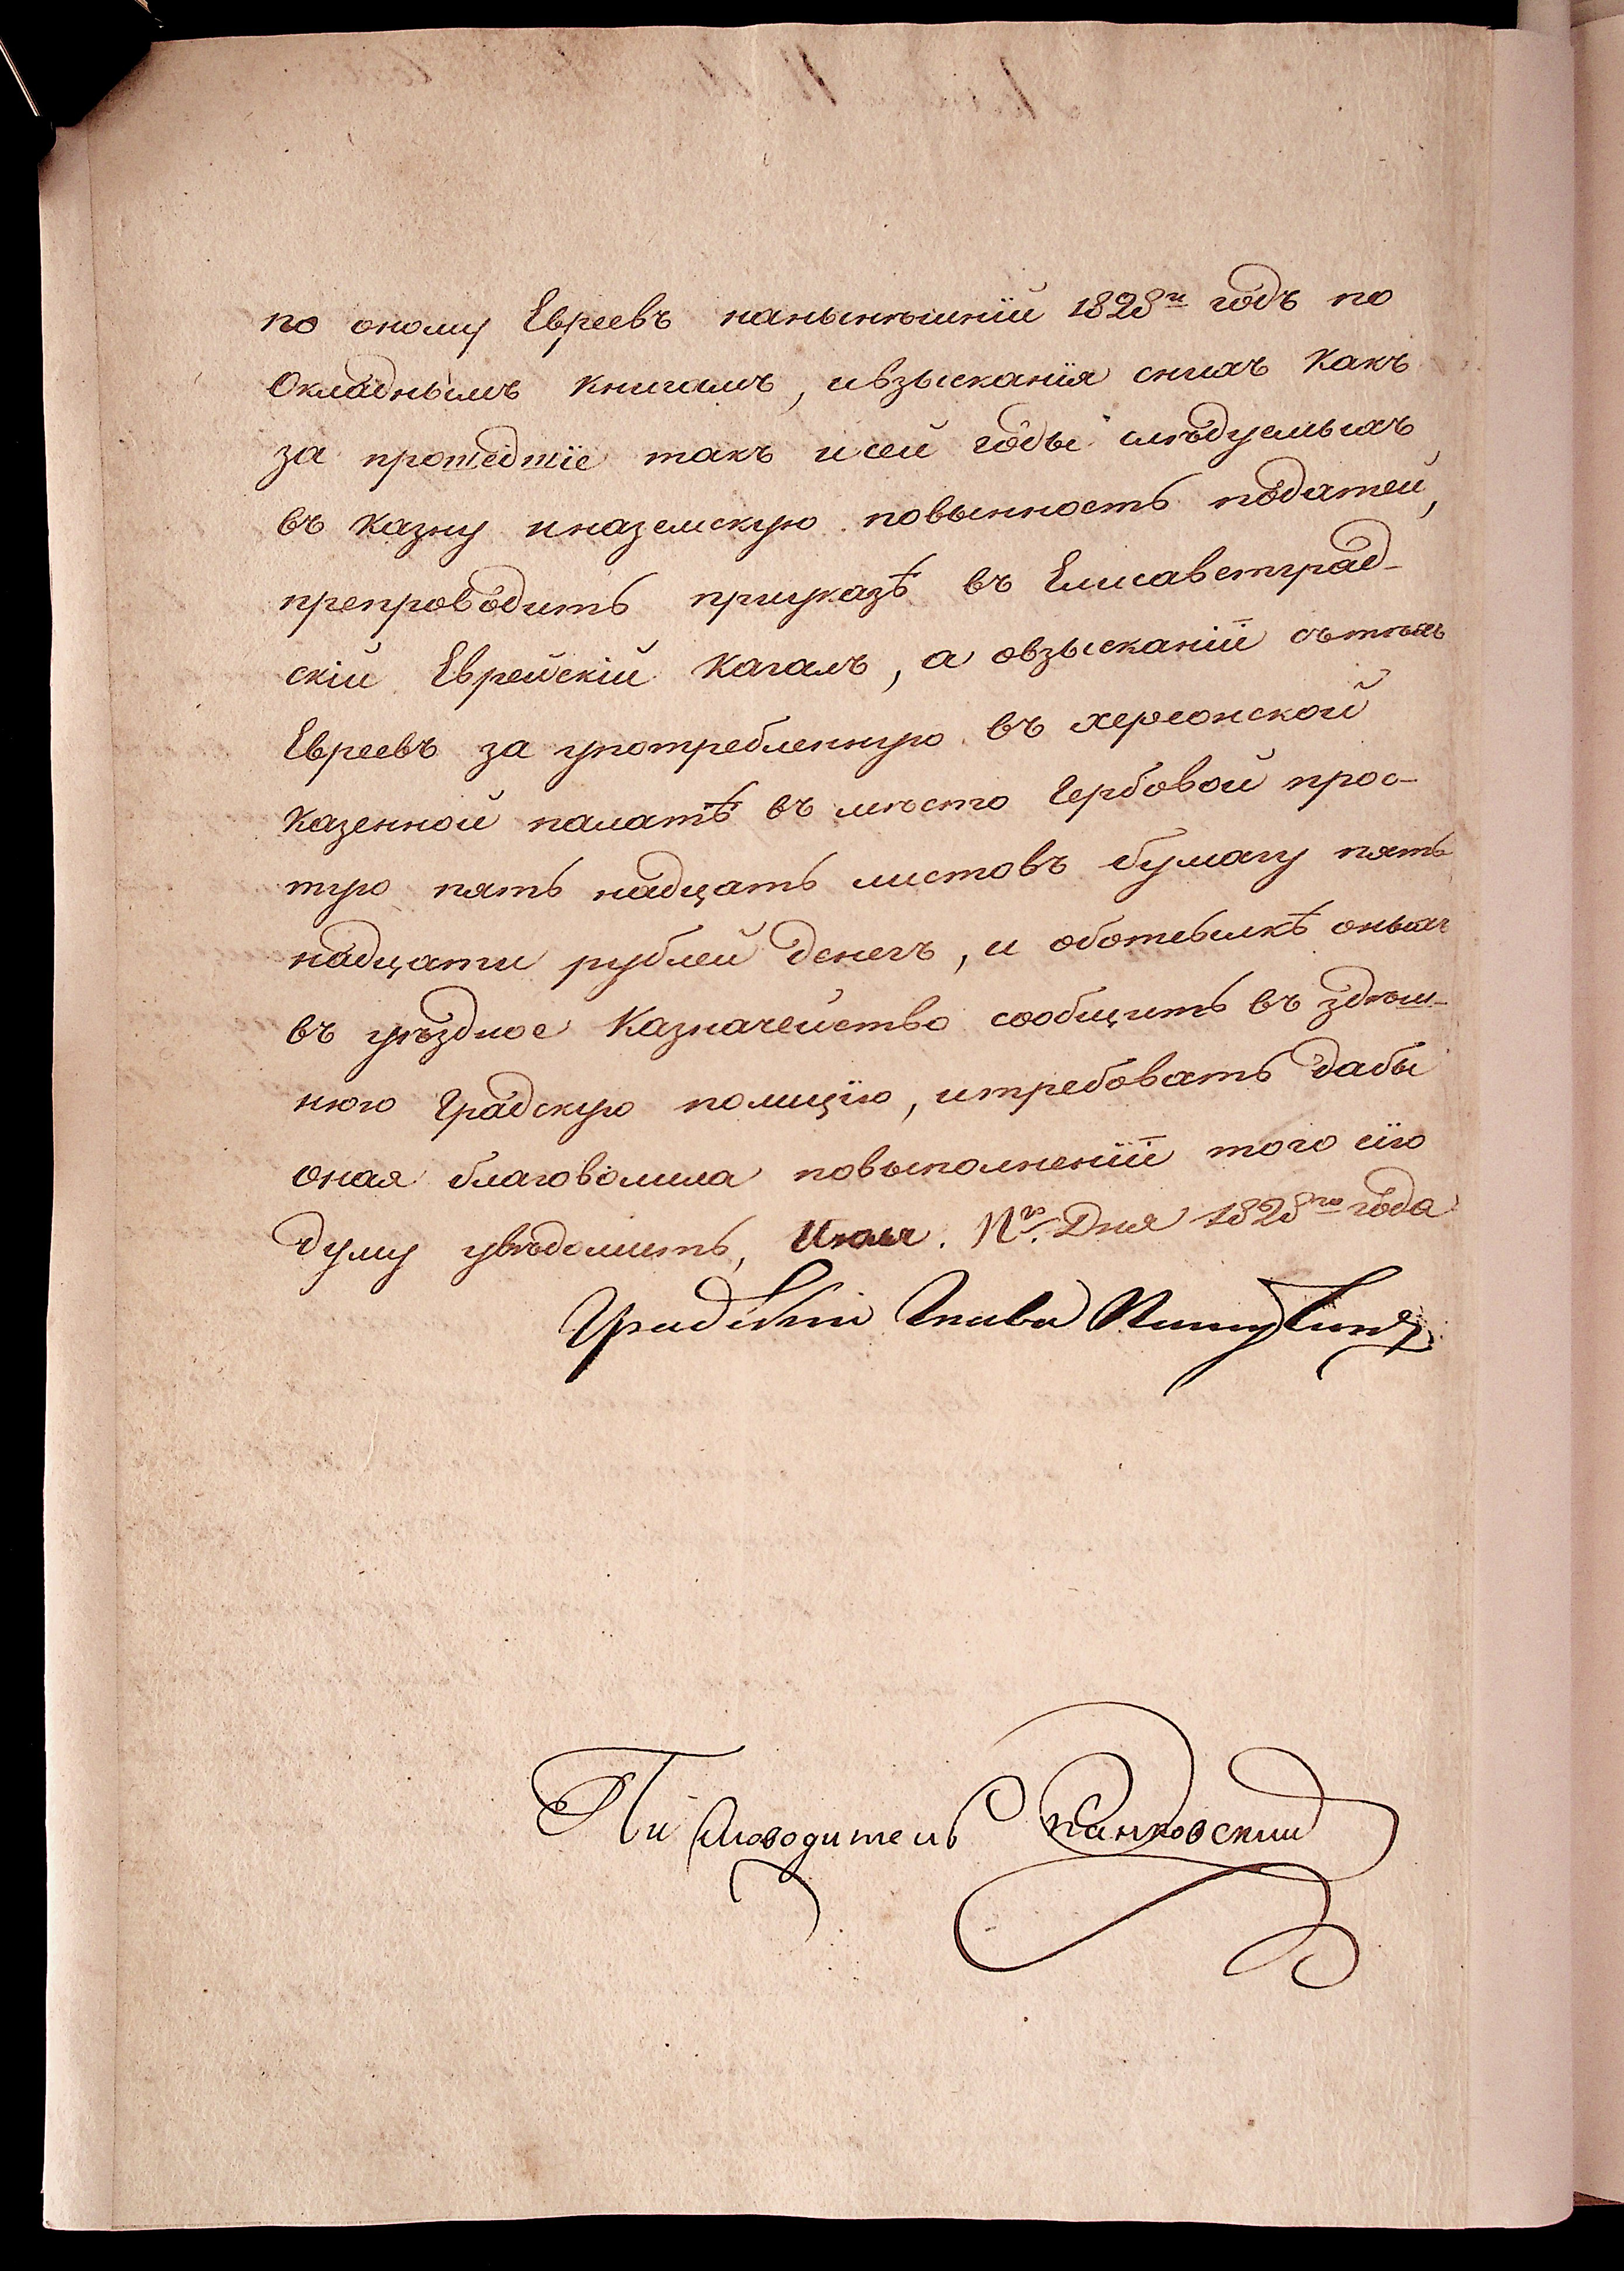 по оному Евреевъ нанынѣшній 1828й годъ по
Окладнымъ книгамъ, ивзысканія снихъ какъ
за прошедшіе такъ исей годы слѣдуемыхъ
въ казну иназемскую повынность податей,
препроводить приуказѣ въ Елисаветград-
скій Еврейскій Кагалъ, а овзысканіи стѣхъ
Евреевъ за употребленную въ херсонской
Казенной палатѣ въ мѣсто Гербовой прос-
тую пять надцать листовъ бумагу пять
надцати рублей денегъ, и оботсылкѣ оныхъ
въ уѣздное Казначейство сообщить въ здѣш-
нюю Градскую полицію, итребовать дабы
оная благоволила повыполненіи того сію
думу увѣдомить, Июля. 11го. Дня 1828го года
Градскій Глава
Письмоводитель Панковский